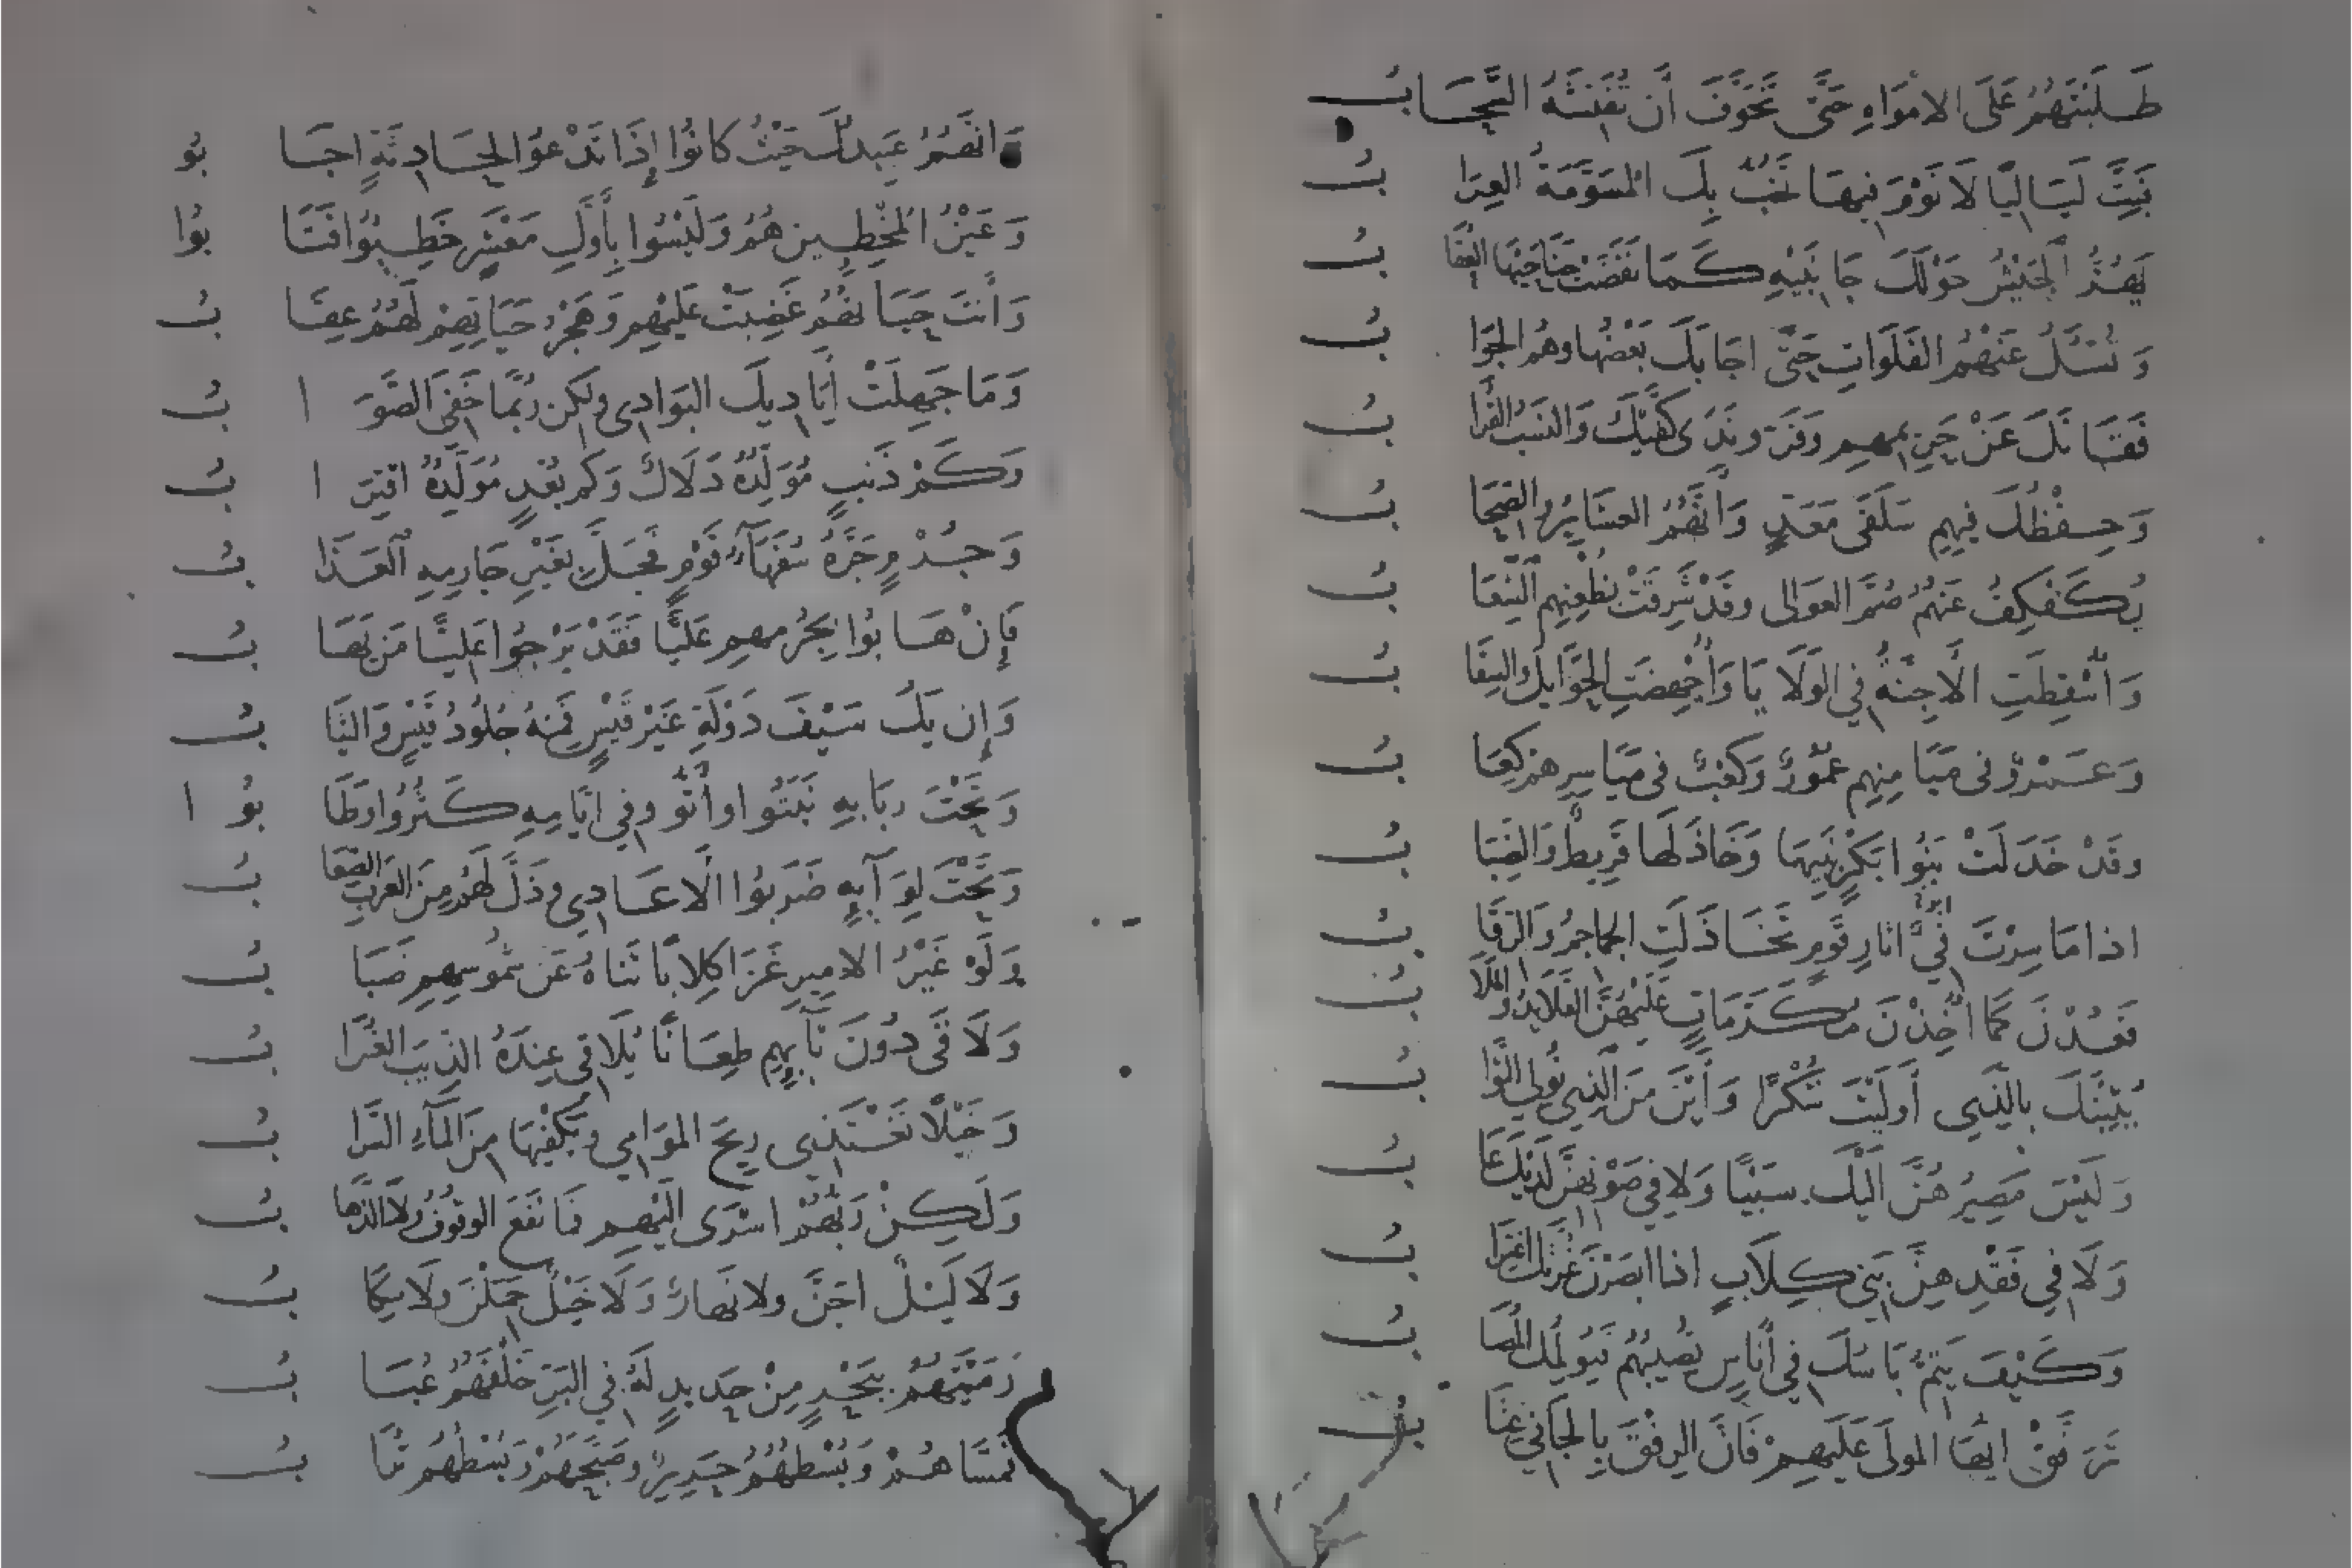 طَلَبْتَهُمُ عَلَى الامْوَاهِ حَتَّى تَخَوَّفَ أَن تُفَتِّشَهُ السَّحَابُ
فَبِتَّ لَيَالِيًا لَا نَوْمَ فِيهَا تَخُبُّ بِكَ المُسَوَّمَةُ العِرَابُ
يَهُزُّ الجَيْشُ حَوْلَكَ جَانِبَيْهِ كَمَا نَفَضَتْ جَنَاحَيْهَا العُقَابُ
وَتُسْئَلُ عَنْهُمُ الفَلَوَاتِ حَتَّى اجَابَكَ بَعْضُهَا وهُمُ الجَوَابُ
فَقَاتَلَ عَنْ حَرِيمِهِم وَفَرّوا نَدَى كَفَّيْكَ وَالنَسَبُ القُرَابُ
وَحِفْظُكَ فِيهِم سَلَفَى مَعَدٍّ وَأَنَّهُمُ العشَايِرُ والصِحَابُ
يُكَفْكِفُ عَنْهُمُ صُمَّ العَوَالِى وقَدْ شَرِقَتْ بِظُعْنِهِم الشِّعَابُ
وَأُسْقِطَتِ الأَجِنَّةُ فِي الوَلَايَا وَأُجْهِضَتِ الحَوَايِلُ والسِقَابُ
وَعَمْرٌو فى مَيَامِنِهِم عُمُورٌ وَكَعْبٌ فى مَيَاسِرِهِمْ كِعَابُ
وقَدْ خَذَلَتْ بَنُوا بَكْرٍ بَنِيهَا وَخَاذَلَهَا قُرَيطٌ وَالضِبَابُ
اذا مَا سِرْتَ فِي اثَارِ قَومٍ تَخَاذَلَتِ الجماجِمُ وَالرِقَابُ
فَعُدْنَ كَمَا أُخِذْنَ مُكَرَّمَاتٍ عَلَيْهِنَّ القَلَايِدُ والمَلَابُ
يُثِبْنَكَ بِالَّذِي أَولَيْتَ شُكْرًا وَأَيْنَ مِنَ الَّذِي تُولِي الثَّوَابُ
وَلَيْسَ مَصِيرُهُنَّ الَيْكَ سَبْيًا وَلا فِي صَوْنِهِنَّ لَدَيْكَ عَابُ
وَلَا فِي فَقْدِهِنَّ بَنِي كِلَابٍ اذا ابصَرْنَ غُرَّتَكَ اغْتِرَابُ
وَكَيْفَ يَتِمُّ بَاسُكَ فِي أُنَاسٍ تُصِيبُهُم فَيُولِمُكَ المُصَابُ
تَرَفَّقْ ايُّهَا المَولَى عَلَيهِمْ فَانَّ الرِفْقَ بِالجَانِي عِتَابُ
وَانَّهُمُ عَبِيدُكَ حَيْثُ كَانُوا إِذَا تَدْعُوا لِحَادِثَةٍ اجَابُو
وَعَيْنُ المُخْطِيِينَ هُمُ وَلَيْسُوا بِأَوَّلِ مَعْشَرٍ خَطِيُوا فَتَابُوا
وَأَنتَ حَيَاتُهُمْ غَضِبَتْ عَلَيْهِم وَهَجْرُ حَيَاتِهِمْ لَهُمُ عِقَابُ
وَمَا جَهِلَتْ أَيَادِيكَ البَوَادِى ولَكِن رُبَّمَا خَفِىَ الصَّوَابُ
وَكَمْ ذَنبٍ مُوَلِّدُهُ دَلَالٌ وَكَم بُعْدٍ مُوَلِّدُهُ اقتِرَابُ
وَجُرْمٍ جَرَّهُ سُفَهَآءُ قَوْمٍ فَحَلَّ بِغَيْرِ جَارِمِهِ العَذَابُ
فَإِنْ هَابُوا بِجُرْمِهِمِ عَلِيًّا فَقَدْ يَرْجُوا عَلِيًّا مَن يَهَابُ
وَإِن يَكُ سَيْفَ دَوْلَةِ غَيْرِ قَيْسٍ فَمِنْهُ جُلُودُ قَيْسٍ وَالثِيَابُ
وَتَحْتَ رَبَابِهِ نَبَتُوا وأَثُّو وفِي ايَّامِهِ كَثُرُوا وطَابُوا
وَتَحْتَ لِوَآئِهِ ضَرَبُوا الأَعَادِي وَذَلَّ لَهُم مِنَ العَرَبِ الصِعَابُ
وَلَوْ غَيْرُ الامِيرِ غَزَا كِلابًا ثَنَاهُ عَن شُمُوسِهِمِ ضَبَابُ
وَلَاقَى دُونَ ثَآيِهِم طِعَانًا يُلَاقِى عِندَهُ الذِيبَ الغُرَابُ
وَخَيْلًا تَغْتَذِي رِيحَ المَوَامِي ويَكْفِيْهَا مِنَ المَآءِ السَّرَابُ
وَلَكِنْ رَبُّهُمْ اسْرَى الَيْهِمِ فَمَا نَفَعَ الوقُوفُ وَلَا الذَّهَابُ
وَلَا لَيْلٌ اجَنَّ ولا نَهَارٌ وَلَا خَيْلٌ حَمَلْنَ ولَا رِكَابُ
رَمَيْتَهُمُ بِبَحْرٍ مِنْ حَدِيدٍ لَهُ فِي البَرِّ خَلْفَهُمُ عُبَابُ
فَمَسَّاهُمْ وَبُسْطُهُمُ حَرِيرٌ وصَبَّحَهُمْ وَبُسْطُهُمُ تُرَابُ